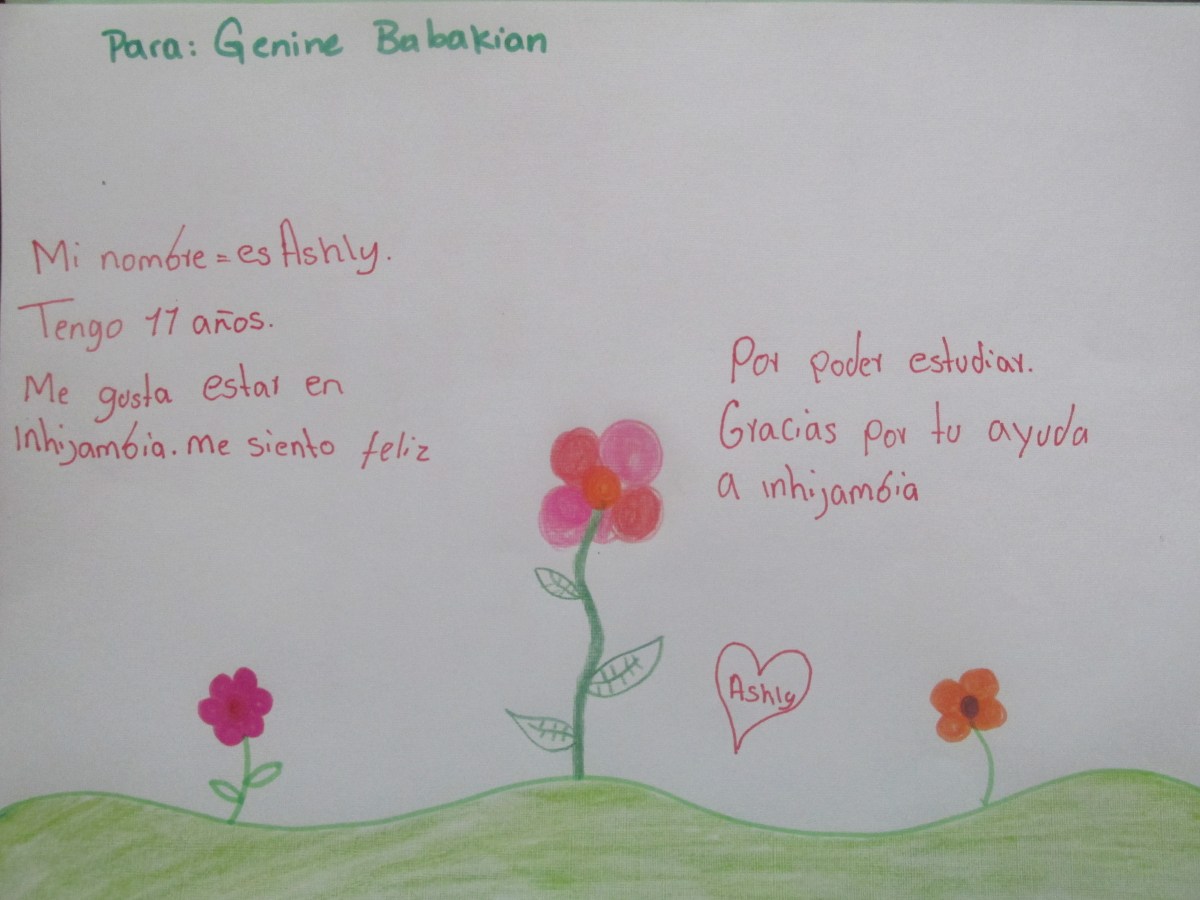 Para: Genine Babakian
Mi nombre = es Ashly.
Tengo 11 años.
Me gusta estar en
Inhijambia. me siento feliz
Por poder estudiar.
Gracias por tu ayuda
a inhijambia
Ashly